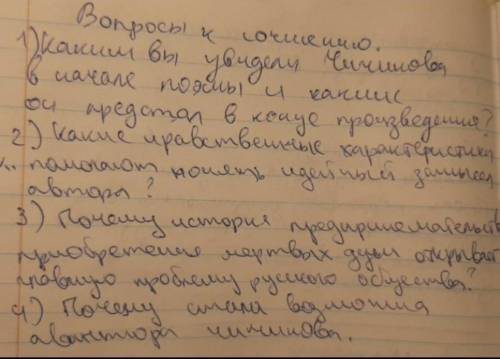 Вопросы к сочинению.
1) Каким вы увидели Чичикова
в начале поэмы и каким
он предстал в конце произведения?
2) Какие нравственные характеристики
помогают понять идейный замысел
автора?
3) Почему история предпринимательств
приобретения мертвых душ открывает
главную проблему русского общества?
4) Почему стала возможна
авантюра чичикова.